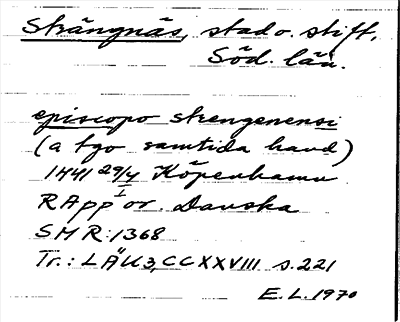 Strängnäs, stad o. stift,
Söd. län.
episcopo strengenensi
(a tgo samtida hand)
1441 29/4 Köpenhamn
RApp or. Danska I
SMR:1368
Tr.: LÄU3, CCXXVIII s.221
E.L.1970